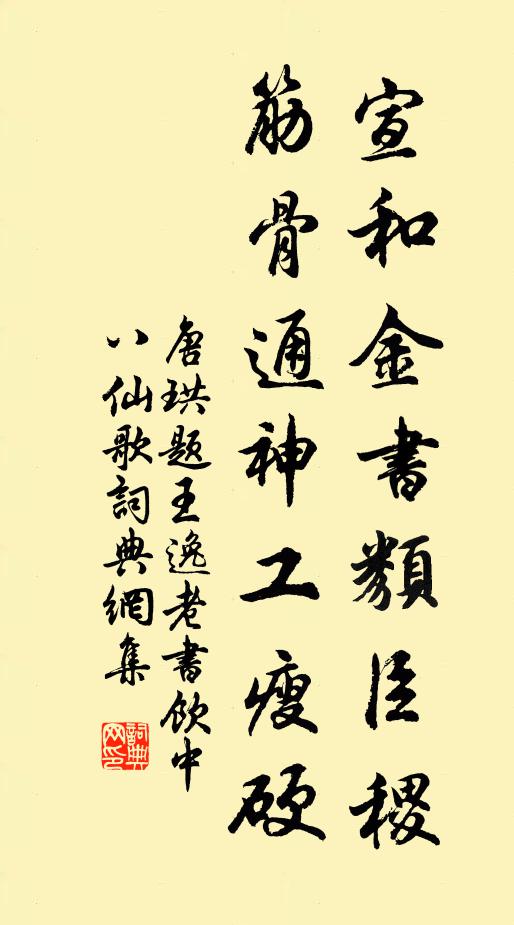 宣和金書類臣稷
筋骨通神工瘦硬
唐珙題王逸老書飲中
八仙歌詞典網集
詞典
网印